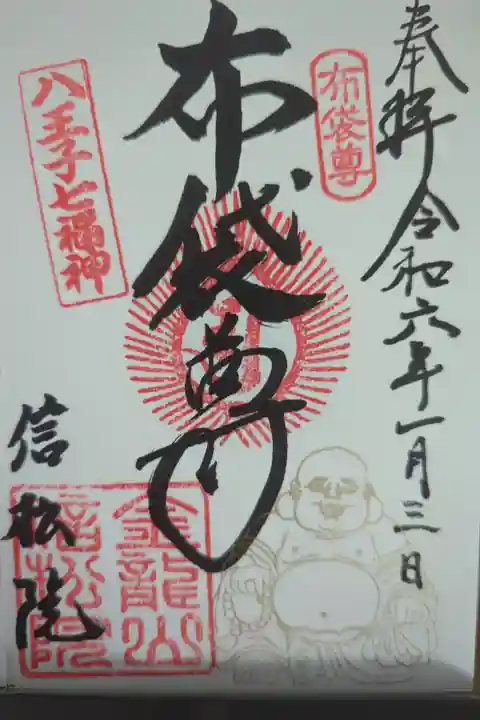 奉拝 令和六年一月三日
布袋尊
布袋尊
八王子七福神
信松院
金龍山
信松院